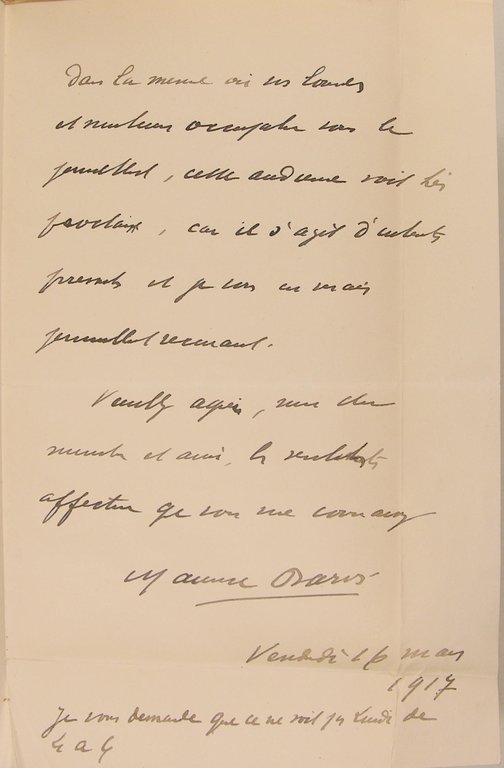 Dans la mesure où vos lourdes
et nombreuses occupations vous le
permettent, cette audience soit très
prochaine, car il s'agit d'intérêts
pressants et je vous en serais
personnellement reconnaissant.
Veuillez agréer, mon cher
ministre et ami, les sentiments
affectueux que vous me connaissez
Maurice Barrès
Vendredi 16 mars
1917
Je vous demande que ce ne soit pas Lundi de
4 à 6